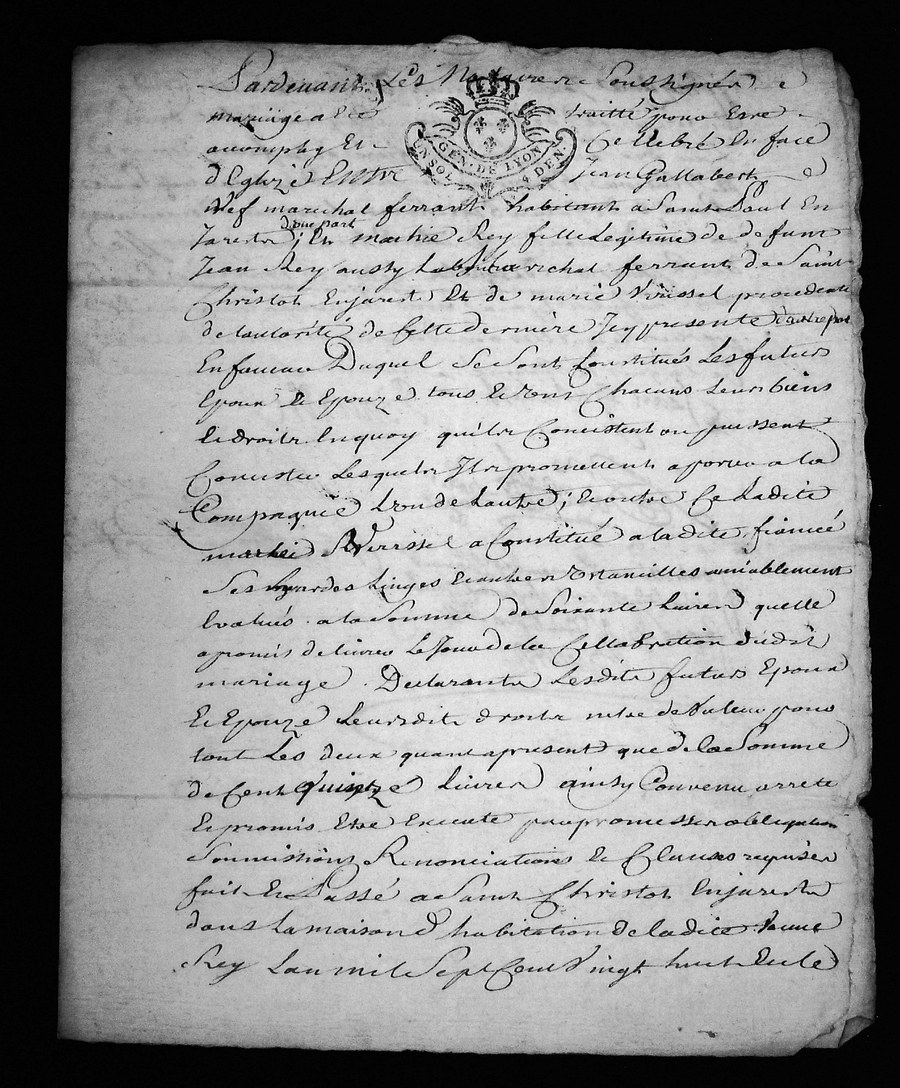 Pardevant Les Notaire Soussignés
mariage a Été traitté pour Estre
acomply Et Cellebré En face
d'Eglize Entre Jean Gallabert
GEN. DE LYON
UN SOL 4 DEN.
Nef marechal ferrant habitant a Saint Paul En
d'une part
Jarestz ; Et Mathie Rey fille Legitime de defunt
Jean Rey aussy marechal ferrant de Saint
Christot En jarest Et de marie Virissel procedante
de l'autorité de cette derniere Icy presente d'autre part
En faveur Duquel Se Sont Constitués Les futurs
Epoux Et Epouze tous Et Uns Chacuns Leurs biens
Et droits En quoy qu'ils Concistent ou puissent
Concister Lesquels Ils promettent aporter a la
Compagnie L'un de L'autre ; Et outre Ce Ladite
Verissel a Constitué a ladite fiancée
Ses hardes Linges Et autres Ustancilles amiablement
Evalués a la Somme de Soixante Livres quelle
a promis delivrer Le Jour de la Cellabration dudit
mariage . Declarants Lesdits futurs Epoux
Et Epouze Leursdits droits n'etre de Valeur pour
tout Les deux quant apresent que de la Somme
de Cent Quinze Livres ainsy Convenu arreté
Et promis Etre Execute par promesses obligation
Soumissions Renonciations Et Clauses requises
fait Et Passé a Saint Christot En jarestz
dans La maison d'habitation de ladite Veuve
Rey L'an mil Sept Cent Vingt huit Et le